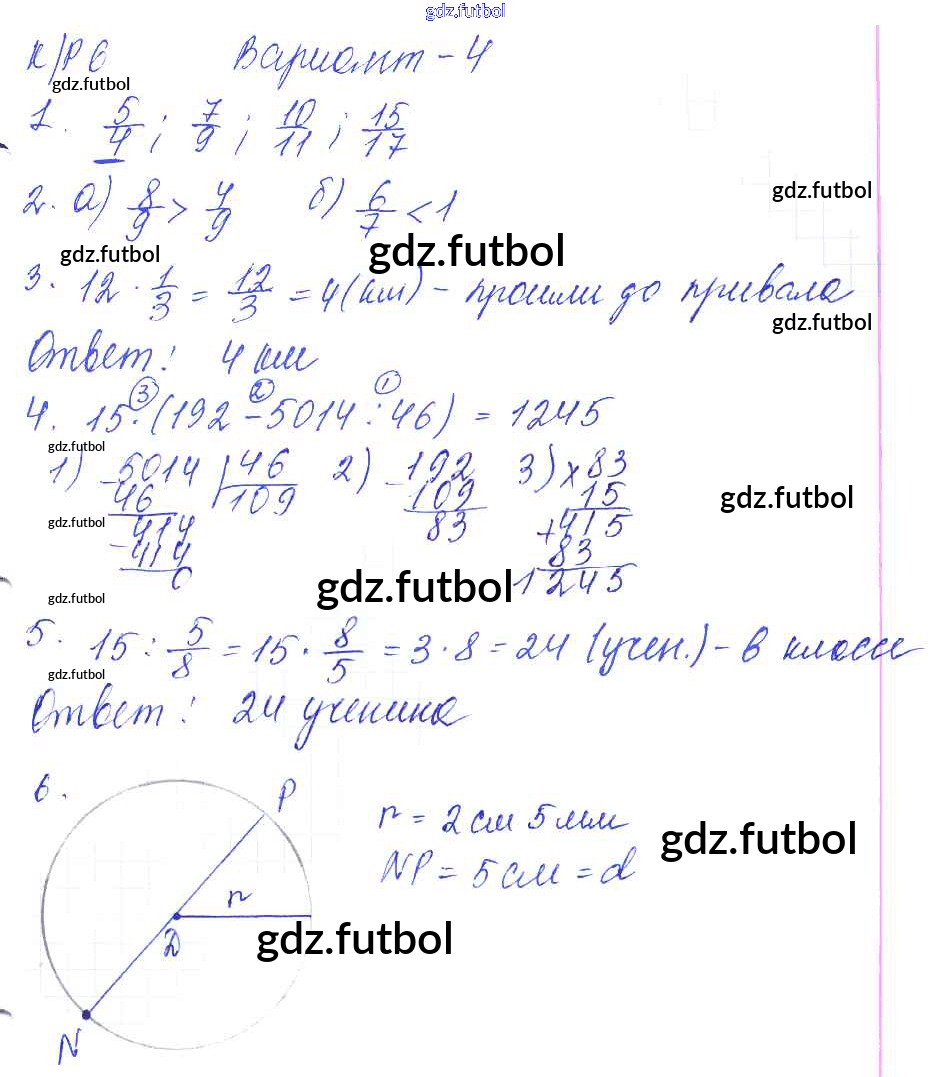 gdz.futbol
К/Р 6 Вариант - 4
gdz.futbol
1. 5/4 ; 7/9 ; 10/11 ; 15/17
gdz.futbol
2. а) 8/9 > 4/9 б) 6/7 < 1
gdz.futbol gdz.futbol
3. 12 · 1/3 = 12/3 = 4 (км) - прошли до привала
gdz.futbol
Ответ: 4 км
③ ② ①
4. 15 · (192 - 5014 : 46) = 1245
gdz.futbol
1) - 5014 | 46 2) - 192 3) × 83
46 109 109 15
gdz.futbol
gdz.futbol
414 83 + 415
- 414 83
0 1245
gdz.futbol
gdz.futbol
5. 15 : 5/8 = 15 · 8/5 = 3 · 8 = 24 (учен.) - в классе
gdz.futbol
Ответ: 24 ученика
6.
P
r = 2 см 5 мм
gdz.futbol
NP = 5 см = d
r
D
gdz.futbol
N